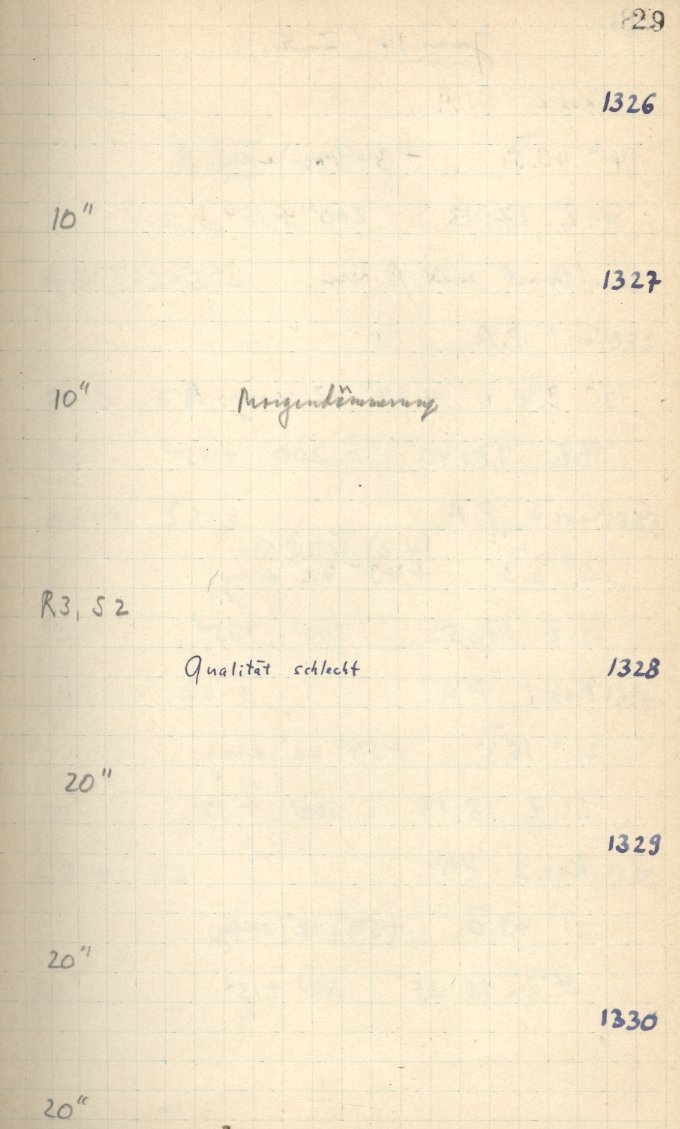 29
1326
10"
1327
10" Morgendämmerung
R3, S2
Qualität schlecht 1328
20"
1329
20"
1330
20"